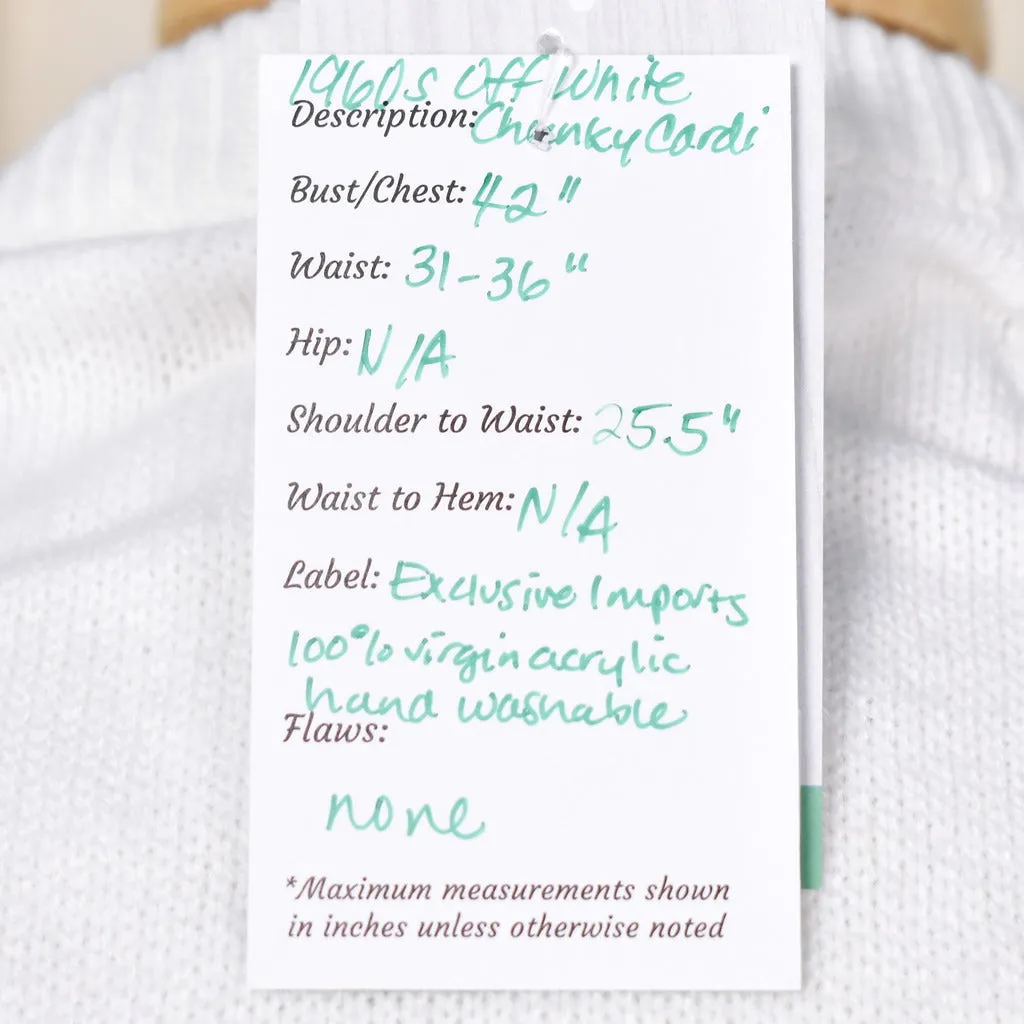 1960s Off White
Description: Chunky Cardi
Bust/Chest: 42"
Waist: 31-36"
Hip: N/A
Shoulder to Waist: 25.5"
Waist to Hem: N/A
Label: Exclusive Imports
100% virgin acrylic
hand washable
Flaws:
none
*Maximum measurements shown
in inches unless otherwise noted